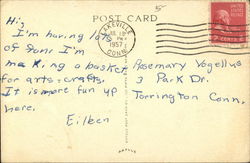 POST CARD
LAKEVILLE
CONN.
1957
PM
Hi,
I'm having lots
of fun. I'm
making a basket
for arts + crafts.
It is more fun up
here.
Eileen
Rosemary Vogellus
3 Park Dr.
Torrington Conn.